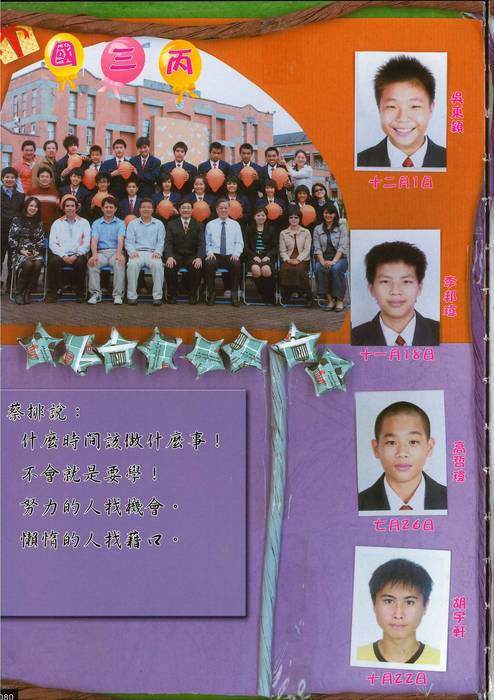 國三丙
吳東穎
十二月1日
李邦瑋
十一月18日
蔡排說：
什麼時間該做什麼事！
不會就是要學！
努力的人找機會。
懶惰的人找藉口。
七月26日
胡宇軒
十月22日
080